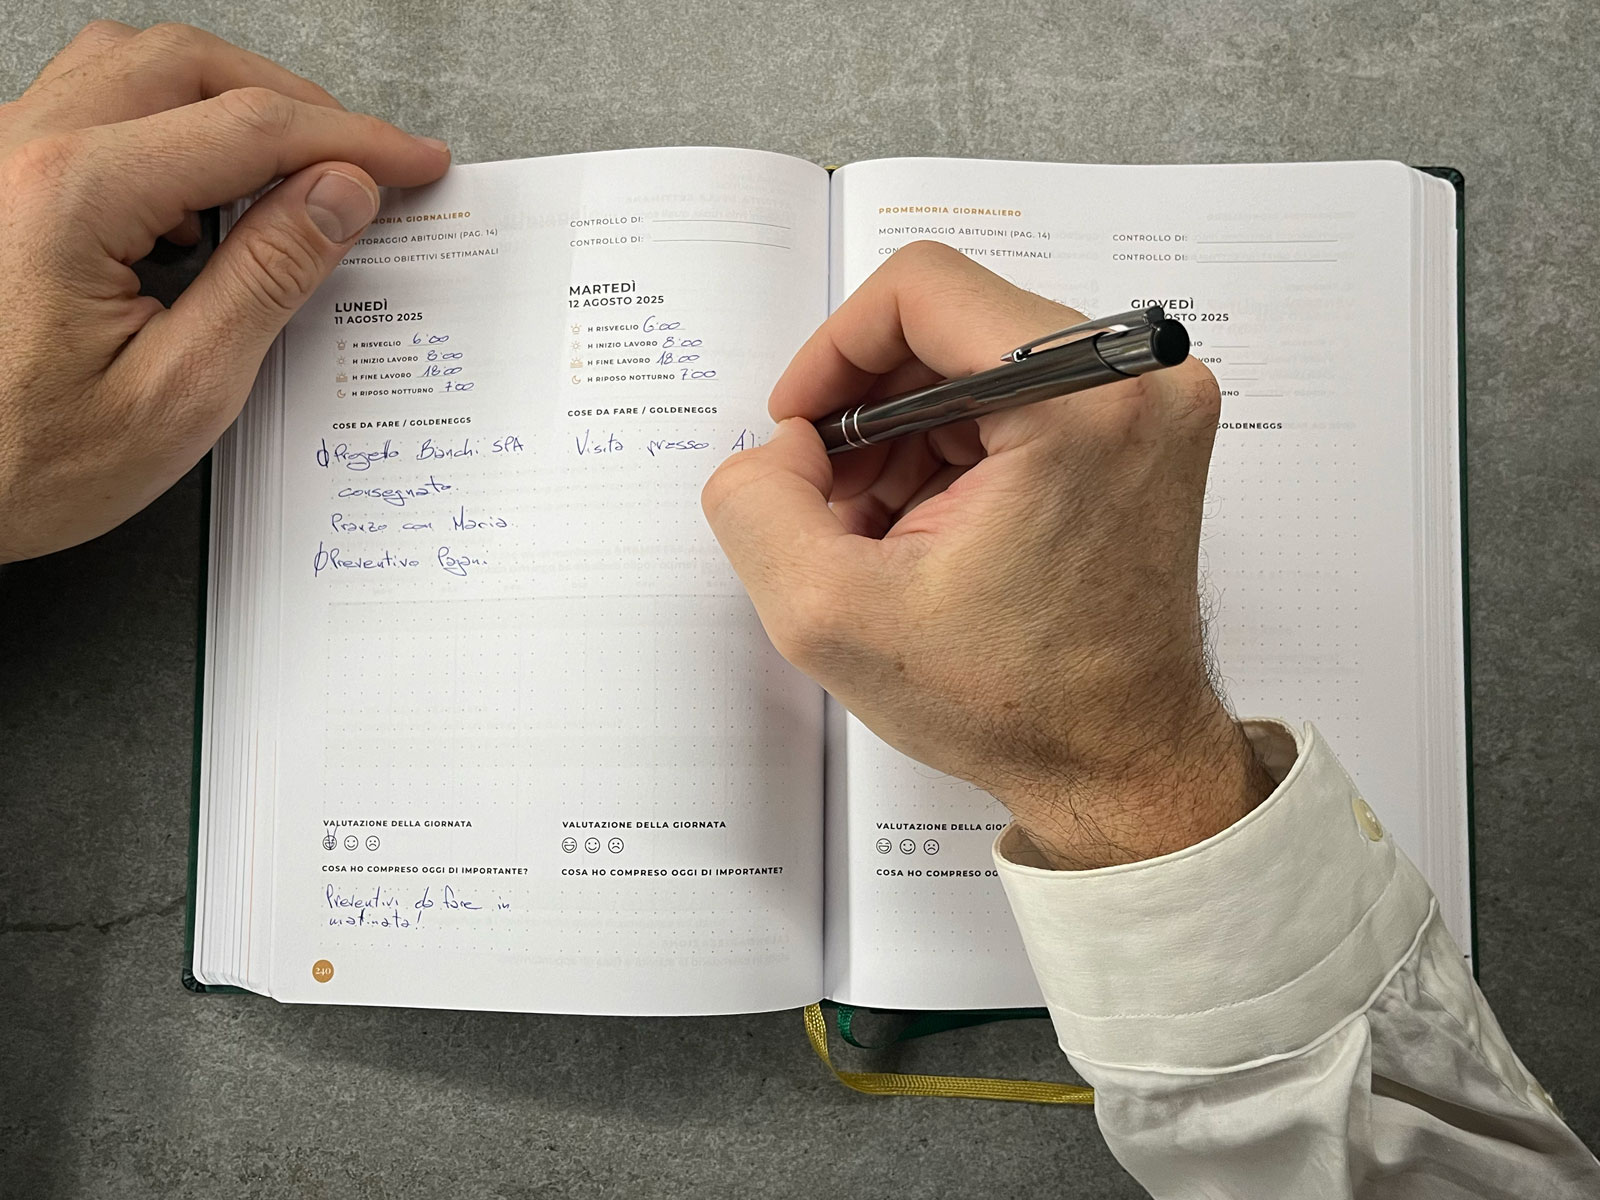 MORIA GIORNALIERO
MONITORAGGIO ABITUDINI (PAG. 14)
CONTROLLO OBIETTIVI SETTIMANALI
CONTROLLO DI:
CONTROLLO DI:
LUNEDÌ
11 AGOSTO 2025
H RISVEGLIO 6:00
H INIZIO LAVORO 8:00
H FINE LAVORO 18:00
H RIPOSO NOTTURNO 7:00
COSE DA FARE / GOLDENEGGS
Progetto Bianchi SPA
consegnato.
Pranzo con Maria.
Preventivo Pagani.
VALUTAZIONE DELLA GIORNATA
COSA HO COMPRESO OGGI DI IMPORTANTE?
Preventivi da fare in
mattinata!
240
MARTEDÌ
12 AGOSTO 2025
H RISVEGLIO 6:00
H INIZIO LAVORO 8:00
H FINE LAVORO 18:00
H RIPOSO NOTTURNO 7:00
COSE DA FARE / GOLDENEGGS
Visita presso Ali
VALUTAZIONE DELLA GIORNATA
COSA HO COMPRESO OGGI DI IMPORTANTE?
PROMEMORIA GIORNALIERO
MONITORAGGIO ABITUDINI (PAG. 14)
OBIETTIVI SETTIMANALI
CONTROLLO DI:
CONTROLLO DI:
VALUTAZIONE DELLA
COSA HO COMPRESO
GIOVEDÌ
2025
GOLDENEGGS